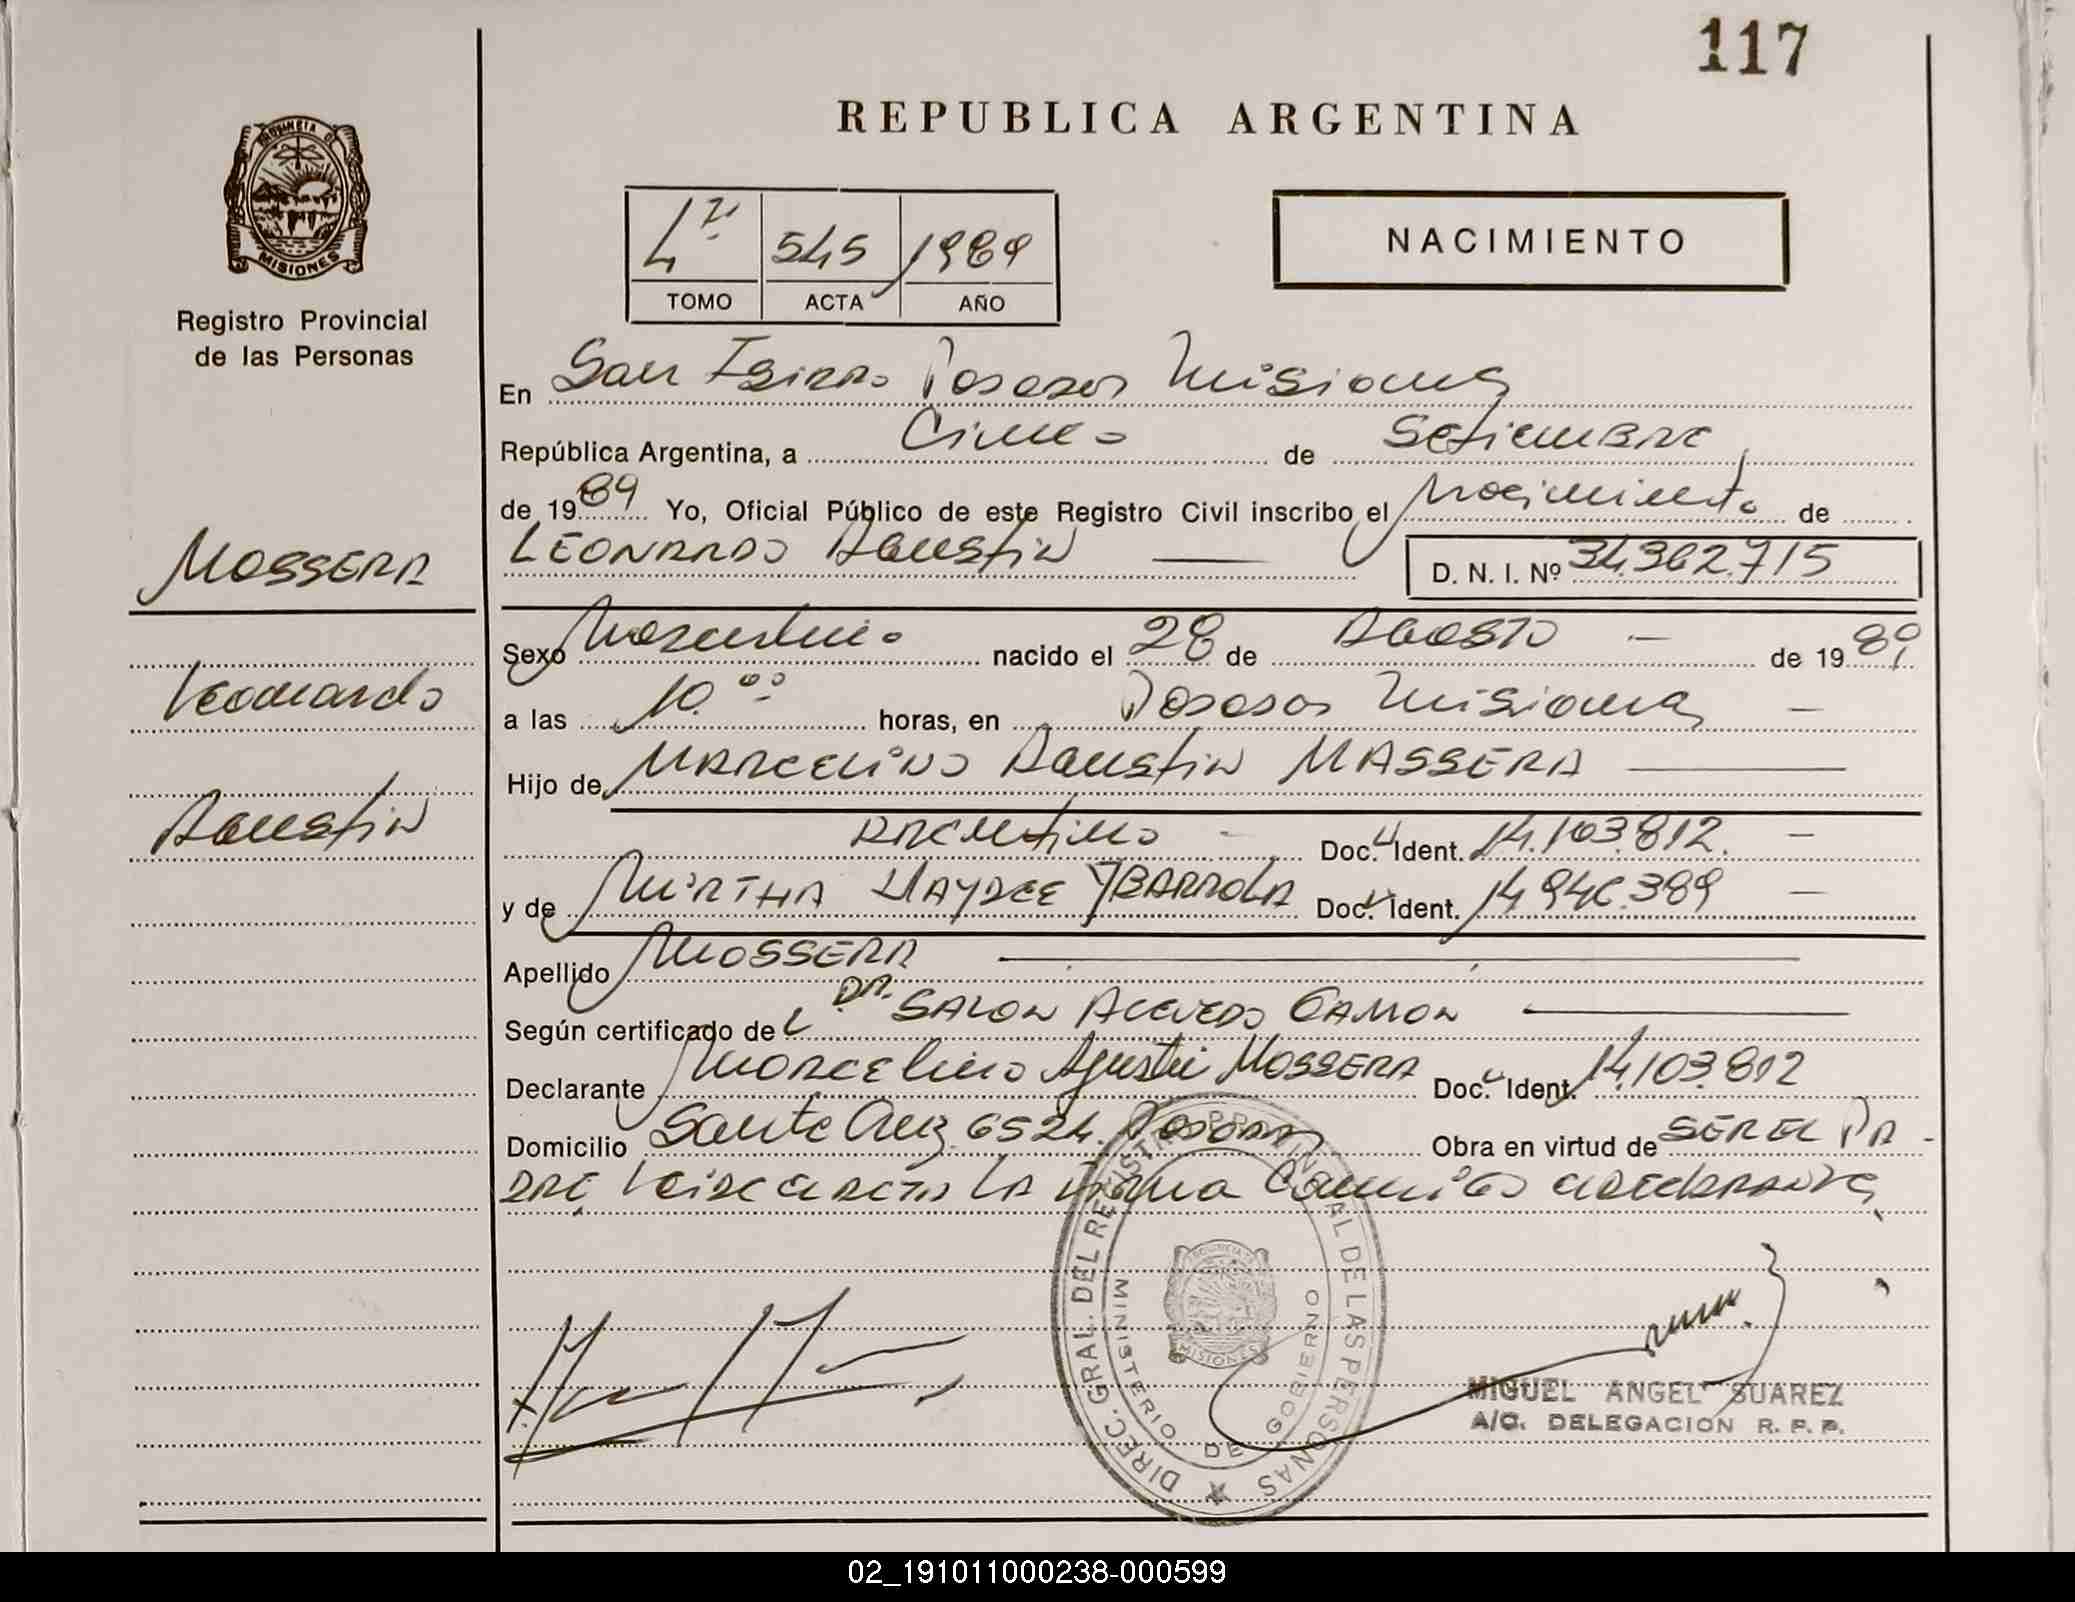 117
REPUBLICA ARGENTINA
PROVINCIA DE
MISIONES
Registro Provincial
de las Personas
545 1989
TOMO ACTA AÑO
NACIMIENTO
En San Isidro Posadas Misiones
República Argentina, a Cinco de Setiembre
de 1989 Yo, Oficial Público de este Registro Civil inscribo el Nacimiento de
MASSERA
LEONARDO Agustin D. N. I. Nº 34.362.715
Sexo Masculino nacido el 28 de Agosto de 1989
Leonardo
a las 10.00 horas, en Posadas Misiones
Hijo de MARCELINO Agustin MASSERA
Agustin
Argentino Doc. Ident. 14.103.812.
y de MIRTHA HAYDEE YBARROLA Doc. Ident. 14946.389
Apellido MASSERA
Según certificado de DR. SALON ACEVEDO GAMON
Declarante Marcelino Agustin MASSERA Doc. Ident. 14.103.812
Domicilio Santa Cruz 6524. Posadas Obra en virtud de SER EL PA
DRE La firma Conmigo
DIREC. GRAL. DEL REGISTRO PROVINCIAL DE LAS PERSONAS
MINISTERIO DE GOBIERNO
MISIONES
MIGUEL ANGEL SUAREZ
A/C. DELEGACION R. P. P.
02_191011000238-000599